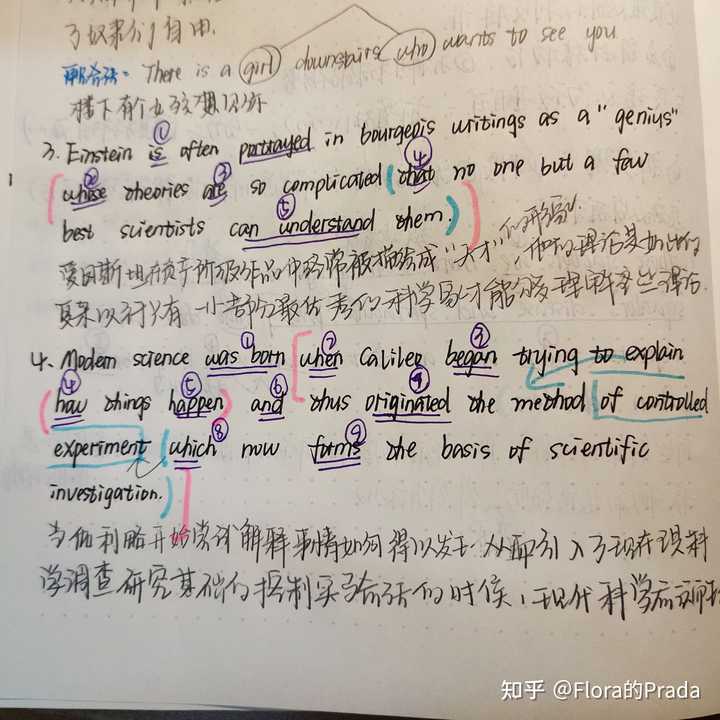 了奴隶们自由.
There is a girl downstairs who wants to see you
楼下有个女孩想见你
3. Einstein is often portrayed in bourgeois writings as a "genius"
whose theories are so complicated (that no one but a few
best scientists can understand them.)
爱因斯坦 作品中经常被描绘成 "天才" 的形象, 他的理论是如此的
复杂以 有一小部分最优秀的科学家才能够理解这些理论.
4. Modern science was born when Galileo began trying to explain
how things happen and thus originated the method of controlled
experiment (which now forms the basis of scientific
investigation.)
当伽利略开始尝试解释事情如何得以发生 从而引入了现在 科
学调查研究基础的控制实验 的时候, 现代科学
知乎 @Flora的Prada